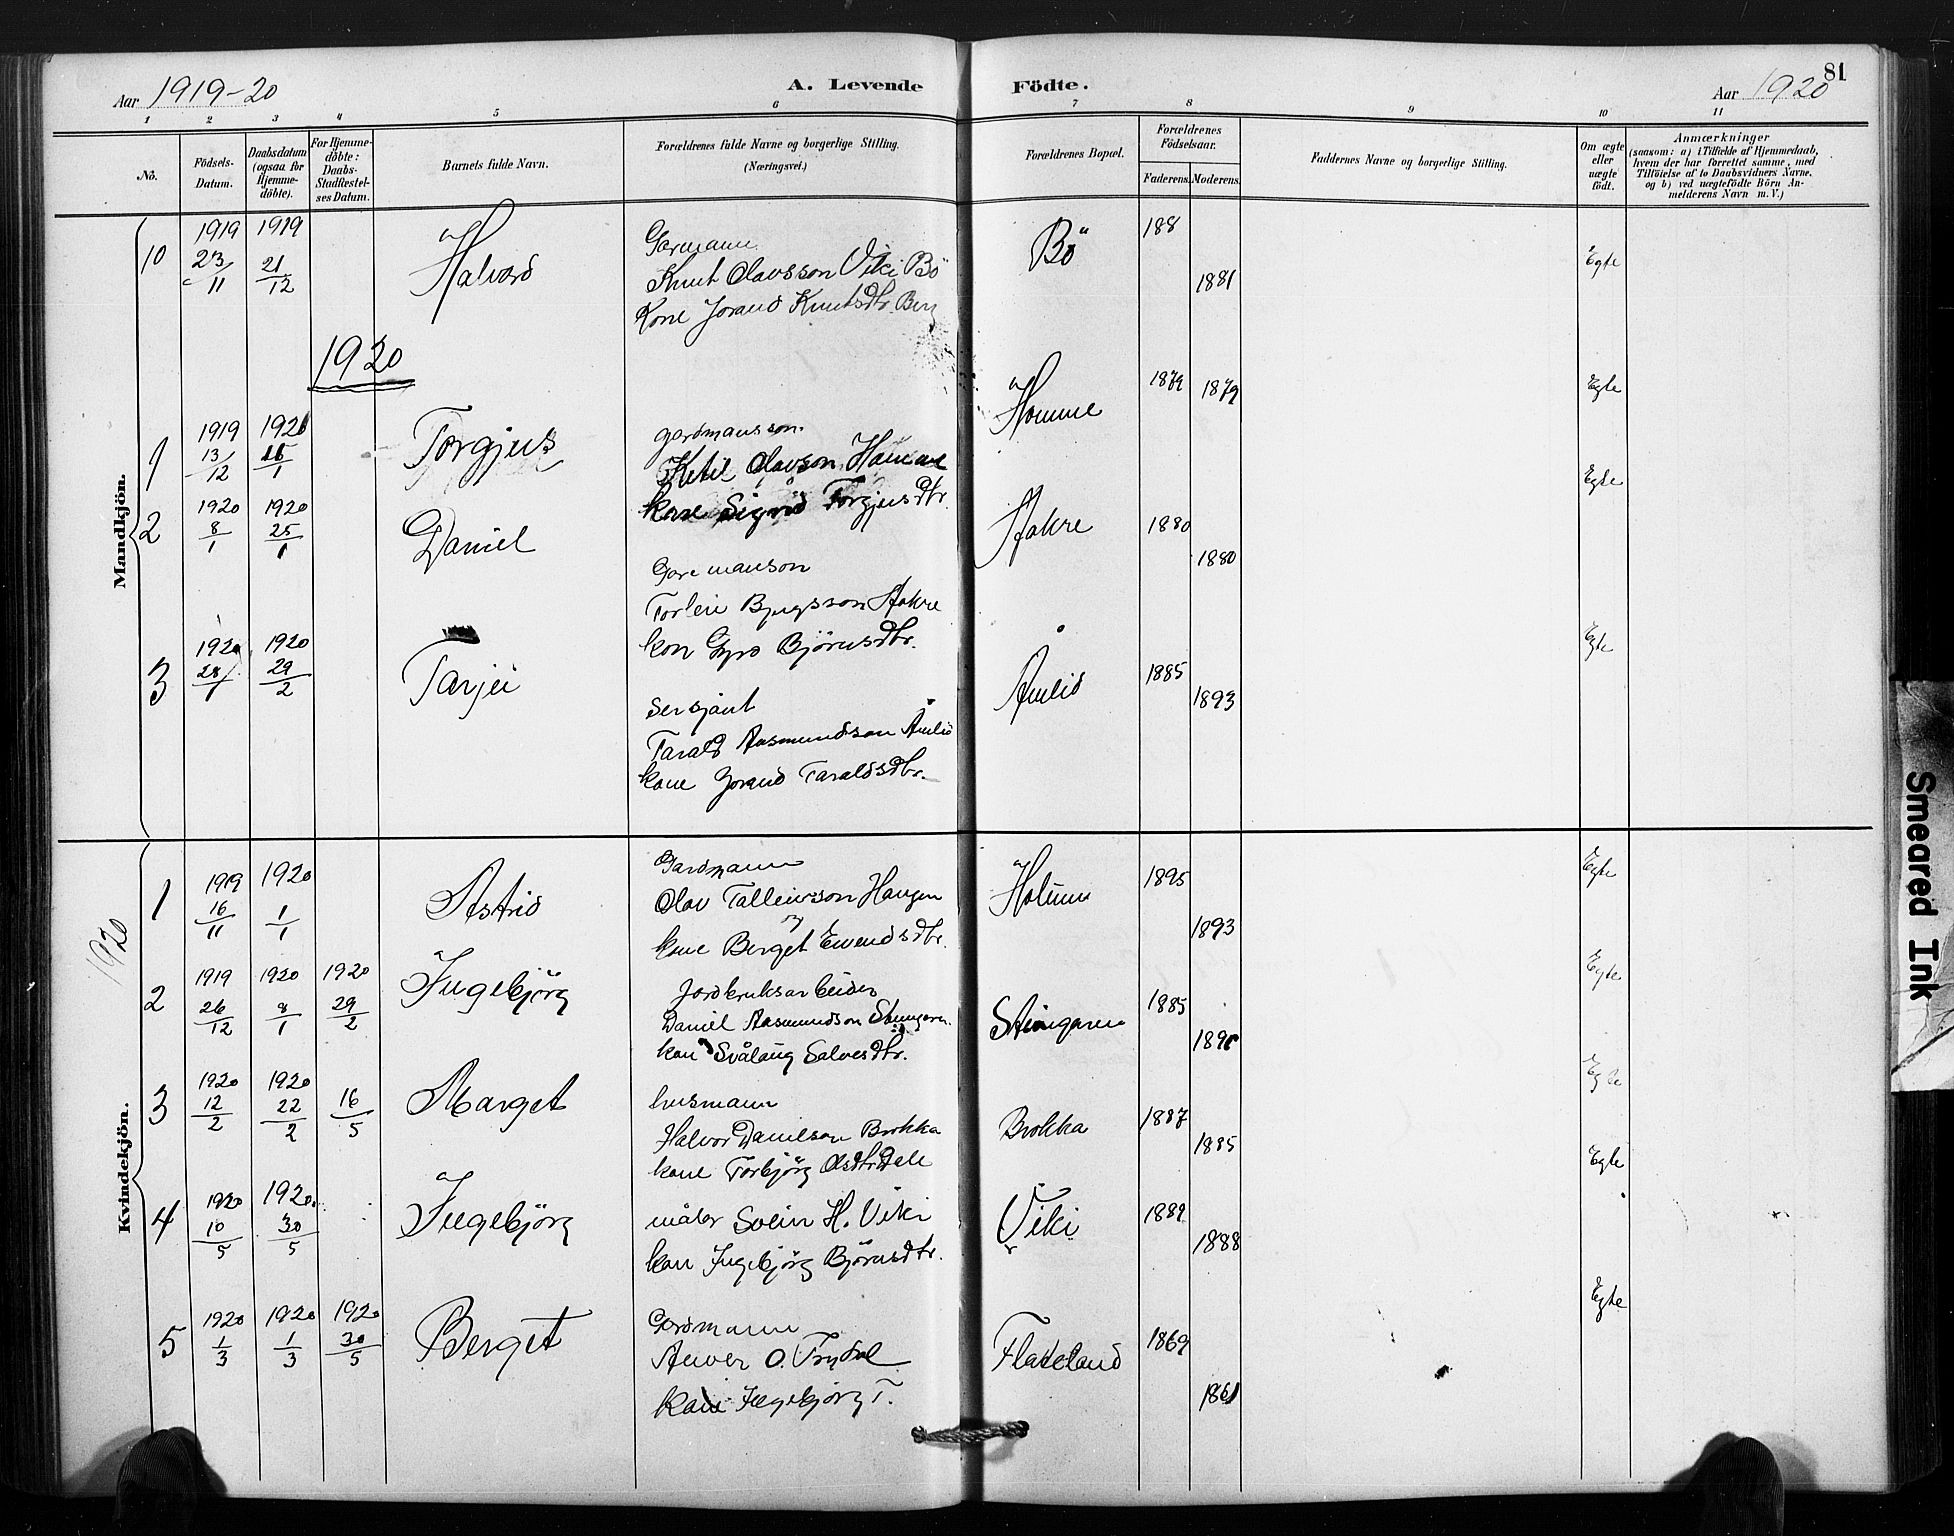 Aar 1919-20
A. Levende
Födte.
Aar 1920
81
1 2 3 4 5 6 7 8 9 10 11
No.
Födsels-
Datum.
Daabsdatum
(ogsaa for
Hjemme-
döbte).
For Hjemme-
döbte:
Daabs-
Stadfæstel-
ses Datum.
Barnets fulde Navn.
Forældrenes fulde Navne og borgerlige Stilling.
(Næringsvei.)
Forældrenes Bopæl.
Forældrenes
Födselsaar.
Faderens.
Moderens.
Faddernes Navne og borgerlige Stilling.
Om ægte
eller
uægte
födt.
Anmærkninger
(saasom: a) i Tilfælde af Hjemmedaab,
hvem der har forrettet samme, med
Tilföielse af to Daabsvidners Navne,
og b) ved uægtefödte Börn An-
melderens Navn m. V.)
Mandkjön.
10
1919
23/11
1919
21/12
Halvord
Garmann
Knut Olavsson Viki Bö
Kone Jorand Knutsdtr. Berg
Bö
188
1881
Egte
1920
1
1919
13/12
1920
/1
Torgjus
gardmansson.
Ketil Olavson Homme
kone Sigrid Torgjusdtr
Homme
1879
1879
Egte
2
1920
8/1
1920
25/1
Daniel
Gardmanson
Torleiv Bjugsson Hakre
kon Gyro Björnsdtr.
Hakre
1880
1880
Egte
3
1920
28/1
1920
29/2
Tarjei
Sersjant
Tarald Aasmundson Åmlid
kone Jorand Taraldsdtr.
Åmlid
1885
1893
Egte
1920
Kvindekjön.
1
1919
16/11
1920
1/1
Astrid
Gardmann
Olav Talleivson Haugen
kone Berget Eivendsdtr.
Holum
1895
1893
Egte
2
1919
26/12
1920
8/1
1920
29/2
Ingebjörg
Jordbruksarbeider
Daniel Aasmundson Stemgaren
kon Svålaug Salvesdtr.
Steingaren
1885
Egte
3
1920
12/2
1920
22/2
16/5
Marget
husmann
Halvor Danielson Brokka
kone Torbjörg Olsdtr Dale
Brokka
1887
1885
Egte
4
1920
10/5
1920
30/5
Ingebjörg
måler Svein H. Viki
kon Ingebjörg Björnsdtr.
Viki
1889
1888
Egte
5
1920
1/3
1920
1/3
1920
30/5
Berget
Gardmann
O. Trydal
Kone Ingebjörg T.
Flateland
1869
1861
Egte
Smeared Ink